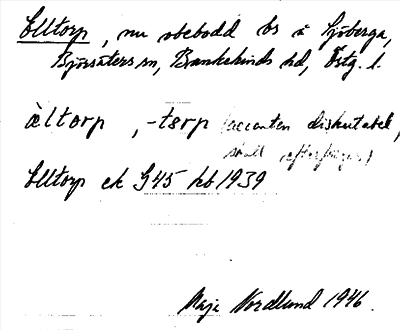 Elltorp, nu obebodd bs å Sjöberga,
Björsäters sn, Bankekinds hd, Östg. l.
àltorp, -tørp (varianten diskutabel,
skall efterfrågas)
Elltorp ek G45 hb 1939
Maja Nordlund 1946.